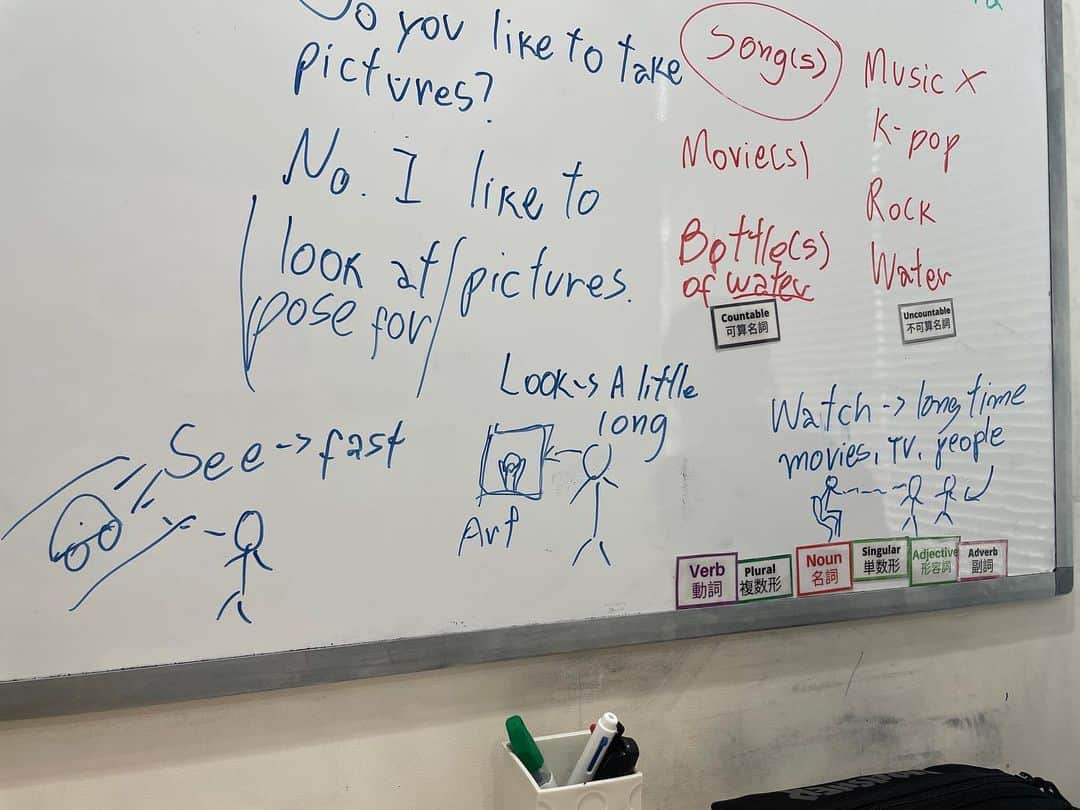 Do you like to take
pictures?
No. I like to
look at
pose for
pictures.
Song(s)
Movie(s)
Bottle(s)
of water
Countable
可算名詞
Music ×
K-pop
Rock
Water
Uncountable
不可算名詞
See -> fast
Look -> A little
long
Art
Watch -> long time
movies, TV, people
Verb
動詞
Plural
複数形
Noun
名詞
Singular
単数形
Adjective
形容詞
Adverb
副詞